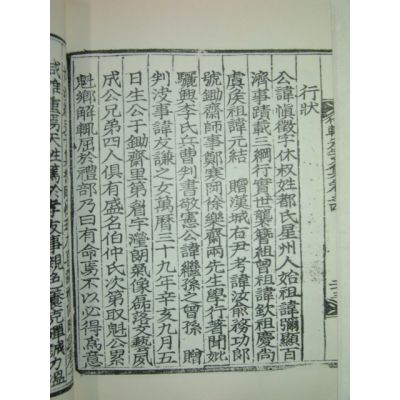 行狀
公諱愼徵字休叔姓都氏星州人始祖諱彌顯百
濟事蹟載三綱行實世襲簪祖曾祖諱欽祖慶尙
虞侯祖諱元結 贈漢城右尹考諱汝兪務功郎
號鋤齋師事鄭寒岡徐樂齋兩先生學行著聞妣
驪興李氏兵曹判書敬憲公諱繼孫之曾孫 贈
判決事諱友謙之女萬曆三十九年辛亥九月五
日生公于鋤齋里第眉宇瀅朗氣像磊落文藝夙
成公兄弟四人俱有盛名伯仲氏次第取魁公累
魁鄕解輒屈於禮部乃曰有命焉不以必得爲意
天性篤於孝友事親色養克殫誠力